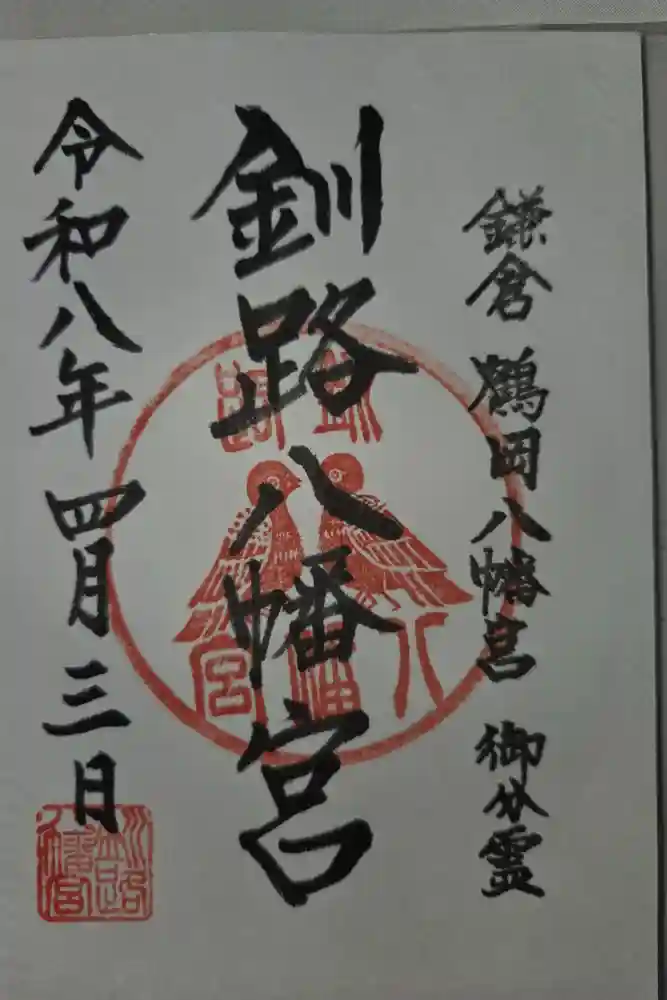 鎌倉 鶴岡八幡宮 御分霊
釧路八幡宮
令和八年四月三日
釧路
八幡宮
釧路
八幡宮